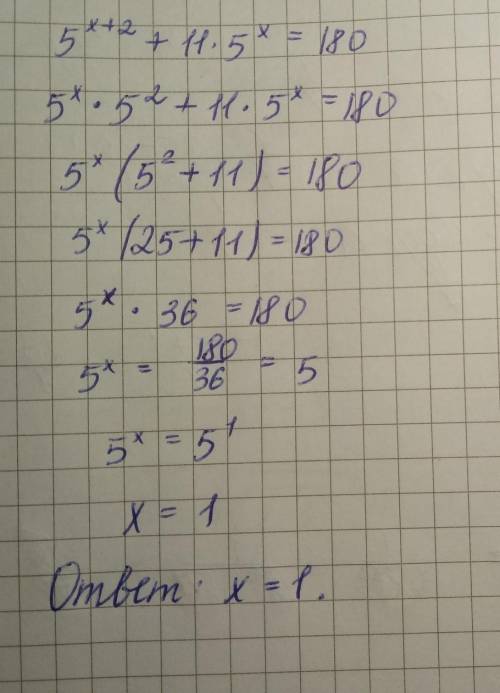 5^{x+2} + 11 · 5^x = 180
5^x · 5^2 + 11 · 5^x = 180
5^x (5^2 + 11) = 180
5^x (25 + 11) = 180
5^x · 36 = 180
5^x = 180/36 = 5
5^x = 5^1
x = 1
Ответ: x = 1.